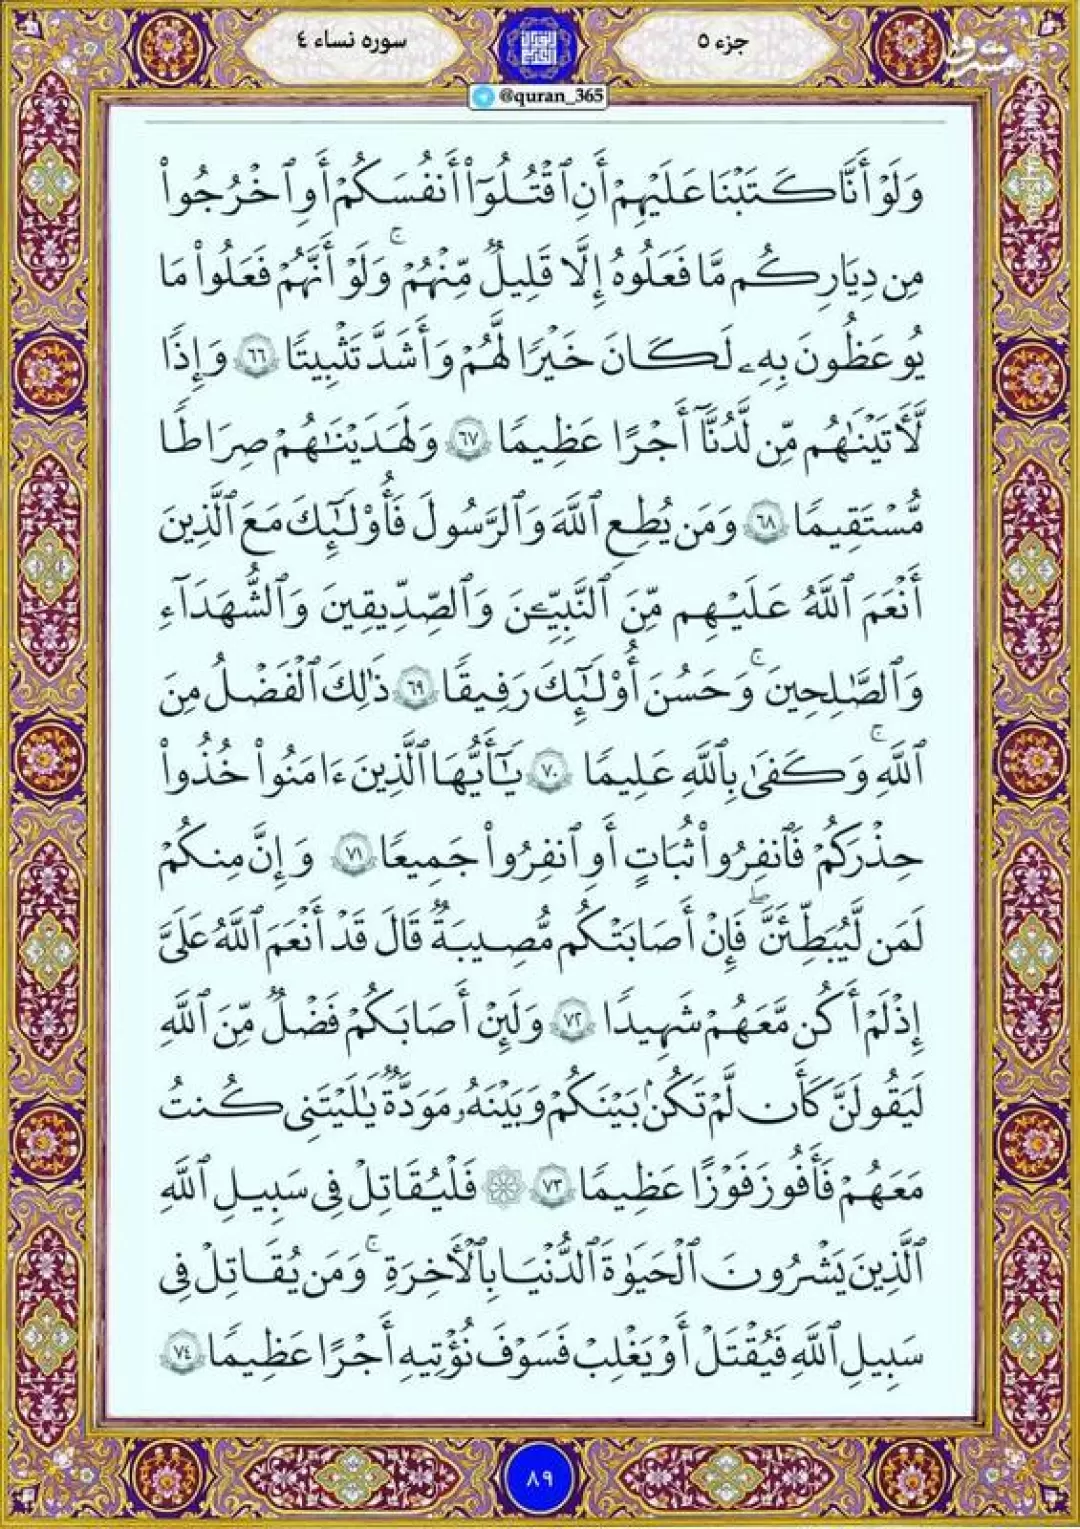 جزء ۵
سوره نساء ٤
@quran_365
وَلَوْ أَنَّا كَتَبْنَا عَلَيْهِمْ أَنِ ٱقْتُلُوٓا۟ أَنفُسَكُمْ أَوِ ٱخْرُجُوا۟
مِن دِيَارِكُم مَّا فَعَلُوهُ إِلَّا قَلِيلٌ مِّنْهُمْ ۖ وَلَوْ أَنَّهُمْ فَعَلُوا۟ مَا
يُوعَظُونَ بِهِۦ لَكَانَ خَيْرًا لَّهُمْ وَأَشَدَّ تَثْبِيتًا ٦٦ وَإِذًا
لَّأَتَيْنَٰهُم مِّن لَّدُنَّآ أَجْرًا عَظِيمًا ٦٧ وَلَهَدَيْنَٰهُمْ صِرَاطًا
مُّسْتَقِيمًا ٦٨ وَمَن يُطِعِ ٱللَّهَ وَٱلرَّسُولَ فَأُو۟لَٰٓئِكَ مَعَ ٱلَّذِينَ
أَنْعَمَ ٱللَّهُ عَلَيْهِم مِّنَ ٱلنَّبِيِّـۧنَ وَٱلصِّدِّيقِينَ وَٱلشُّهَدَآءِ
وَٱلصَّٰلِحِينَ ۚ وَحَسُنَ أُو۟لَٰٓئِكَ رَفِيقًا ٦٩ ذَٰلِكَ ٱلْفَضْلُ مِنَ
ٱللَّهِ ۚ وَكَفَىٰ بِٱللَّهِ عَلِيمًا ٧٠ يَٰٓأَيُّهَا ٱلَّذِينَ ءَامَنُوا۟ خُذُوا۟
حِذْرَكُمْ فَٱنفِرُوا۟ ثُبَاتٍ أَوِ ٱنفِرُوا۟ جَمِيعًا ٧١ وَإِنَّ مِنكُمْ
لَمَن لَّيُبَطِّئَنَّ ۖ فَإِنْ أَصَابَتْكُم مُّصِيبَةٌ قَالَ قَدْ أَنْعَمَ ٱللَّهُ عَلَىَّ
إِذْ لَمْ أَكُن مَّعَهُمْ شَهِيدًا ٧٢ وَلَئِنْ أَصَابَكُمْ فَضْلٌ مِّنَ ٱللَّهِ
لَيَقُولَنَّ كَأَن لَّمْ تَكُنۢ بَيْنَكُمْ وَبَيْنَهُۥ مَوَدَّةٌ يَٰلَيْتَنِى كُنتُ
مَعَهُمْ فَأَفُوزَ فَوْزًا عَظِيمًا ٧٣ ۞ فَلْيُقَاتِلْ فِى سَبِيلِ ٱللَّهِ
ٱلَّذِينَ يَشْرُونَ ٱلْحَيَوٰةَ ٱلدُّنْيَا بِٱلْأَخِرَةِ ۚ وَمَن يُقَاتِلْ فِى
سَبِيلِ ٱللَّهِ فَيُقْتَلْ أَوْ يَغْلِبْ فَسَوْفَ نُؤْتِيهِ أَجْرًا عَظِيمًا ٧٤
۸۹